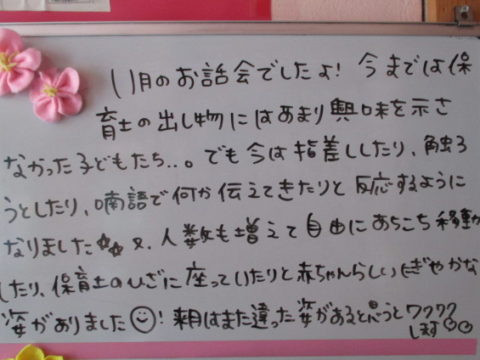 11月のお話会でしたよ! 今までは保
育士の出し物にはあまり興味を示さ
なかった子どもたち...。でも今は指差ししたり、触ろ
うとしたり、喃語で何か伝えてきたりと反応するように
なりました☆☆ 又、人数も増えて自由にあちこち移動
したり、保育士のひざに座っていたりと赤ちゃんらしいにぎやかな
姿がありました☺! 来月はまた違った姿があると思うとワクワク
します☺☺